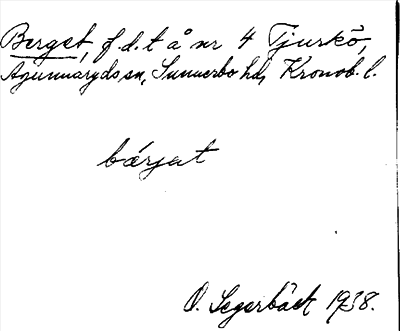 Berget, f.d.t å nr 4 Tjurkö,
Agunnaryds sn, Sunnerbo hd, Kronob. l.
bärjet
O. Segerbäck 1938.